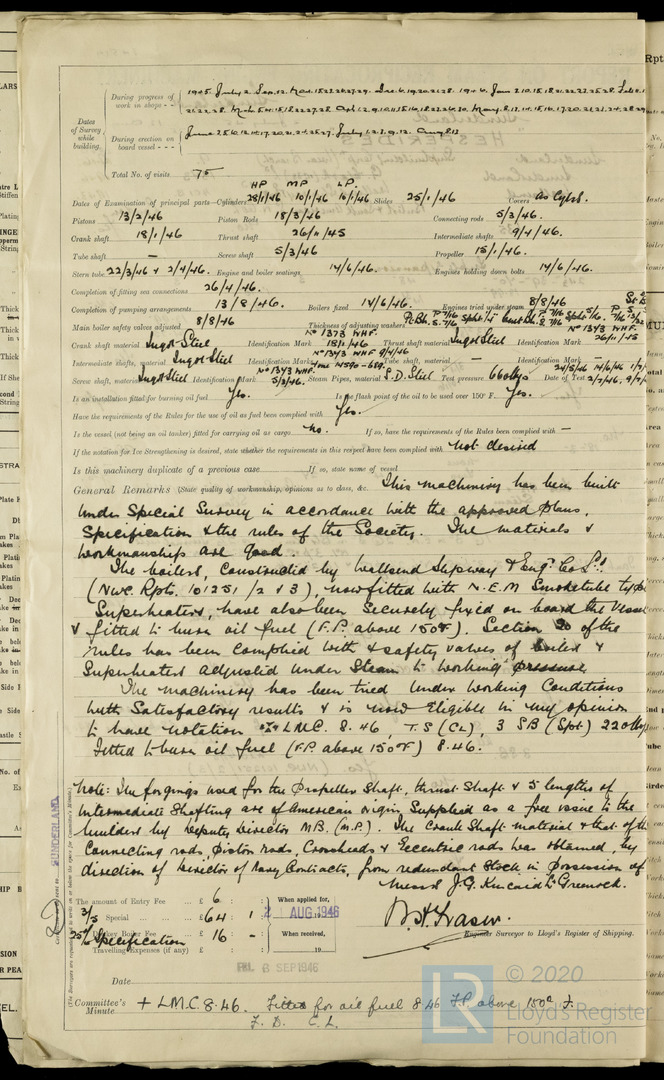 During progress of work in shops - -
1945. July 2. Sep. 12. Nov. 15.22.26.27.29. Dec. 6.19.20.21.28. 1946. Jan 2.10.15.18.21.22.25.28. Feb.
Dates of Survey while building.
During erection on board vessel - - -
June 25.6.12.14.17.20.21.24.25.27. July 1.2.9.12. Aug 8.13
Total No. of visits 75
HP MP LP.
Dates of Examination of principal parts—Cylinders 28/1/46 10/1/46 16/1/46 Slides 25/1/46 Covers as Cyls.
Pistons 13/2/46 Piston Rods 18/3/46 Connecting rods 5/3/46.
Crank shaft 18/1/46 Thrust shaft 26/11/45 Intermediate shafts 9/4/46.
Tube shaft — Screw shaft 5/3/46 Propeller 15/1/46.
Stern tube 22/3/46 & 2/4/46. Engine and boiler seatings 14/6/46. Engines holding down bolts 14/6/46.
Completion of fitting sea connections 26/4/46.
Completion of pumping arrangements 13/8/46. Boilers fixed 14/6/46. Engines tried under steam 8/8/46
Main boiler safety valves adjusted 8/8/46 Thickness of adjusting washers
Crank shaft material Ingot Steel Identification Mark No 1373 WHF. 18/1/46 Thrust shaft material Ingot Steel Identification Mark No 1343 WHF. 26/11/45
Intermediate shafts, material Ingot Steel Identification Marks No 1343 WHF 9/4/46 Tube shaft, material — Identification Mark —
Screw shaft, material Ingot Steel Identification Mark No 1343 WHF. 5/3/46. Steam Pipes, material S.D. Steel Test pressure 660 lbs Date of Test 24/5/46 14/6/46 2/7/46.
Is an installation fitted for burning oil fuel Yes. Is the flash point of the oil to be used over 150°F. Yes.
Have the requirements of the Rules for the use of oil as fuel been complied with Yes.
Is the vessel (not being an oil tanker) fitted for carrying oil as cargo No. If so, have the requirements of the Rules been complied with —
If the notation for Ice Strengthening is desired, state whether the requirements in this respect have been complied with Not desired
Is this machinery duplicate of a previous case If so, state name of vessel
General Remarks (State quality of workmanship, opinions as to class, &c. This machinery has been built
under Special Survey in accordance with the approved plans,
Specification & the rules of the Society. The materials &
workmanship are good.
The boilers, constructed by Wallsend Slipway & Engg. Co Ltd
(Nwc. Rpts. 101251 /2 & 3), now fitted with N.E.M Smoketube type
Superheaters, have also been securely fixed on board the Vessel
& fitted to burn oil fuel (F.P. above 150°F). Section 20 of the
rules has been complied with & safety valves of boiler &
Superheaters adjusted under Steam to working pressure.
The machinery has been tried under working conditions
with satisfactory results & is now eligible in my opinion
to have notation + LMC. 8.46, T.S (CL), 3 SB (Spt.) 220 lbs
Fitted to burn oil fuel (F.P. above 150°F) 8.46.
Note: The forgings used for the Propeller Shaft, thrust Shaft & 5 lengths of
intermediate Shafting are of American origin, Supplied as a free issue to the
builders by Deputy Director M.B. (M.P.). The Crank Shaft material & that of the
Connecting rods, piston rods, Crossheads & Eccentric rods was obtained, by
direction of Director of Navy Contracts, from redundant Stock in possession of
Messrs J.G. Kincaid Ld Greenock.
SUNDERLAND
The amount of Entry Fee .. £ 6 : :
Special ... ... £ 64 : 1 :
Donkey Boiler Fee ... £ 16 : — :
Specification
Travelling Expenses (if any) £ : :
When applied for,
AUG 1946
When received,
19
Engineer Surveyor to Lloyd's Register of Shipping.
FRI. 6 SEP 1946
Date
Committee's Minute
+ L.M.C. 8.46. Fitted for oil fuel 8.46 F.P. above 150° F.
F. D. C. L.
LR
© 2020
Lloyd's Register
Foundation